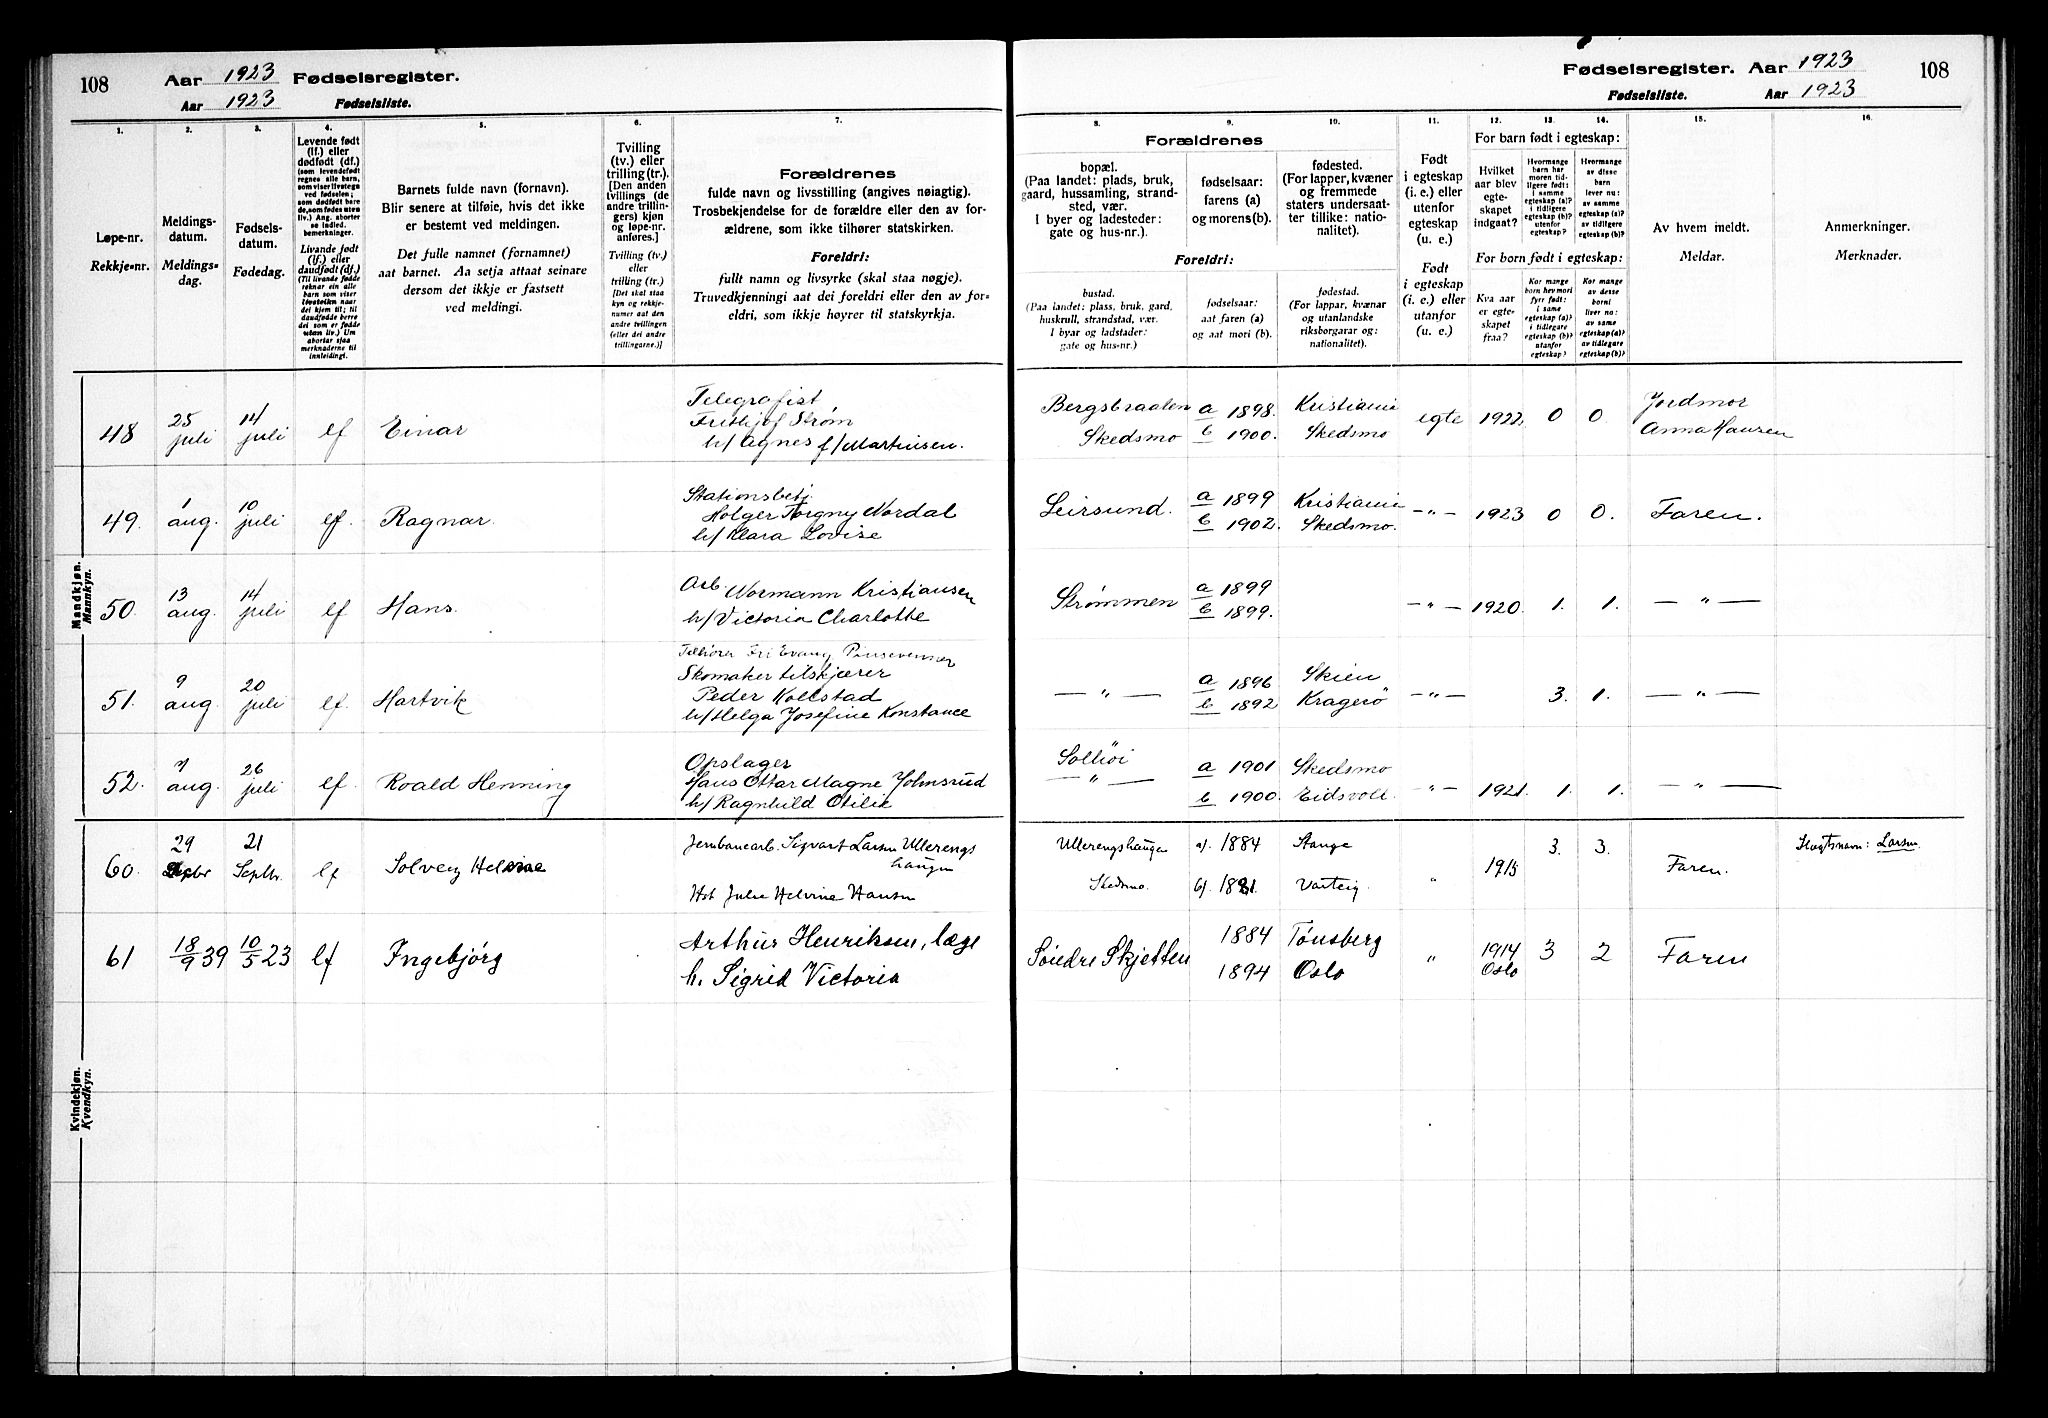 108
Aar 1923 Fødselsregister.
Aar 1923 Fødselsliste.
Fødselsregister. Aar 1923
Fødselsliste. Aar 1923
108
1.
Løpe-nr.
Rekkje-nr.
2.
Meldings-
datum.
Meldings-
dag.
3.
Fødsels-
datum.
Fødedag.
4.
Levende født
(lf.) eller
dødfødt (df.)
(som levendefødt
regnes alle barn,
som viser livstegn
ved fødselen;
som dødfødt bare
de, som fødes uten
liv.) Ang. aborter
se indled.
bemerkninger.
Livande født
(lf.) eller
daudfødt (df.)
(Til livande fødde
reknar ein alle
barn som viser
livsteikn naar
dei kjem til; til
daudfødde berre
dei som er fødde
utan liv.) Um
abortar sjaa
merknaderne til
innleidingi.
5.
Barnets fulde navn (fornavn).
Blir senere at tilføie, hvis det ikke
er bestemt ved meldingen.
Det fulle namnet (fornamnet)
aat barnet. Aa setja attaat seinare
dersom det ikkje er fastsett
ved meldingi.
6.
Tvilling
(tv.) eller
trilling (tr.).
[Den anden
tvillings (de
andre trillin-
gers) kjøn
og løpe-nr.
anføres.]
Tvilling (tv.)
eller
trilling (tr.)
[Det skal staa
kyn og rekkje-
numer aat den
andre tvillingen
(eller dei andre
trillingarne.)]
7.
Forældrenes
fulde navn og livsstilling (angives nøiagtig).
Trosbekjendelse for de forældre eller den av for-
ældrene, som ikke tilhører statskirken.
Foreldri:
fullt namn og livsyrke (skal staa nøgje).
Truvedkjenningi aat dei foreldri eller den av for-
eldri, som ikkje høyrer til statskyrkja.
8.
9.
10.
Forældrenes
bopæl.
(Paa landet: plads, bruk,
gaard, hussamling, strand-
sted, vær.
I byer og ladesteder:
gate og hus-nr.).
fødselsaar:
farens (a)
og morens(b).
fødested.
(For lapper, kvæner
og fremmede
staters undersaat-
ter tillike: natio-
nalitet).
Foreldri:
bustad.
(Paa landet: plass, bruk, gard,
huskrull, strandstad, vær.
I byar og ladstader:
gate og hus-nr.)
fødselsaar:
aat faren (a)
og aat mori (b).
fødestad.
(For lappar, kvænar
og utanlandske
riksborgarar og:
nationalitet).
11.
Født
i egteskap
(i. e.) eller
utenfor
egteskap
(u. e.)
Født
i egteskap
(i. e.) eller
utanfor
(u. e.)
12.
13.
14.
For barn født i egteskap:
Hvilket
aar blev
egte-
skapet
indgaat?
Hvormange
barn har
moren tid-
ligere født:
i samme
egteskap (a)?
i tidligere
egteskap (b)?
utenfor
egteskap?
Hvormange
av disse
barn
lever nu:
av samme
egteskap (a)?
av tidligere
egteskap (b)?
For born født i egteskap:
Kva aar
er egte-
skapet
fraa?
Kor mange
born hev mori
fyrr født:
i same
egteskap (a)?
i tidlegare
egteskap (b)?
utanfor
egteskap?
Kor mange
av desse
borni
liver no:
av same
egteskap (a)?
av tidlegare
egteskap (b)?
15.
Av hvem meldt.
Meldar.
16.
Anmerkninger.
Merknader.
Mandkjøn.
Mannkyn.
48 25 juli 14 juli lf Einar
Telegrafist
Frithjof Strøm
h/ Agnes f/ Martinsen.
Bergsbraaten
Skedsmo
a 1898. Kristiania
b 1900. Skedsmo
egte 1922. 0 0
Jordmor
Anna Hansen
49. 1 aug. 10 juli lf. Ragnar.
Stationsbetj.
Holger Torgny Nordal
h/ Klara Lovise
Leirsund.
a 1899 Kristiania
b 1902. Skedsmo.
-"- 1923 0 0. Faren.
50. 13 aug. 14 juli lf Hans.
Arb. Normann Kristiansen
h/ Victoria Charlotte
Strømmen
a 1899
b 1899.
-"- 1920. 1. 1. -"-
51. 9 aug. 20 juli lf. Hartvik
Tilhører Fri Evang Pinsevenner
Skomaker tilskjærer
Peder Kollstad
h/ Helga Josefine Konstance
-"-
a 1896 Skien
b 1892 Kragerö
-"- 3. 1. -"-
52. 7 aug. 26 juli lf. Roald Henning
Opslager
Hans Ottar Magne Johnsrud
h/ Ragnhild Otilie
Solhöi
-"-
a 1901 Skedsmo
b 1900. Eidsvoll.
-"- 1921. 1. 1. -"-
Kvindekjøn.
Kvendkyn.
60. 29 21 Septbr. lf Solveig Helvine
Jernbanearb. Sigvart Larsen Ullerengs
haugen
Hst Julie Helvine Hansen
Ullerengshaugen
Skedsmo.
a). 1884 Stange
b). Varteig.
" 1915 3. 3. Faren.
Slegtsnavn: Larsen.
61 18/9 39 10/5 23 lf Ingebjörg
Arthur Henriksen, læge
h. Sigrid Victoria
Söndre Skjetten
1884 Tönsberg
1894 Oslo
" 1914
Oslo
3 2 Faren